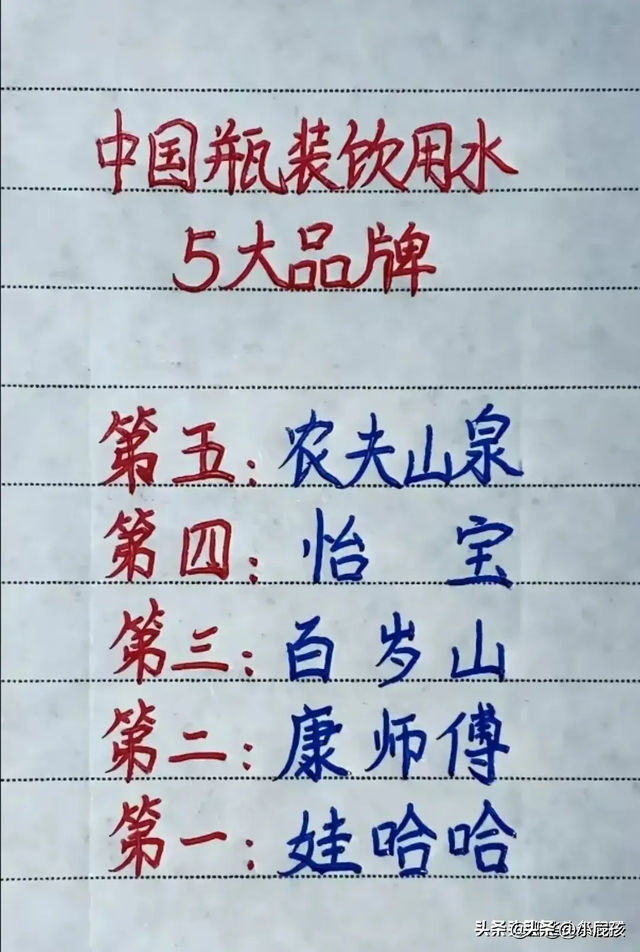 中国瓶装饮用水
5大品牌
第五：农夫山泉
第四：怡宝
第三：百岁山
第二：康师傅
第一：娃哈哈